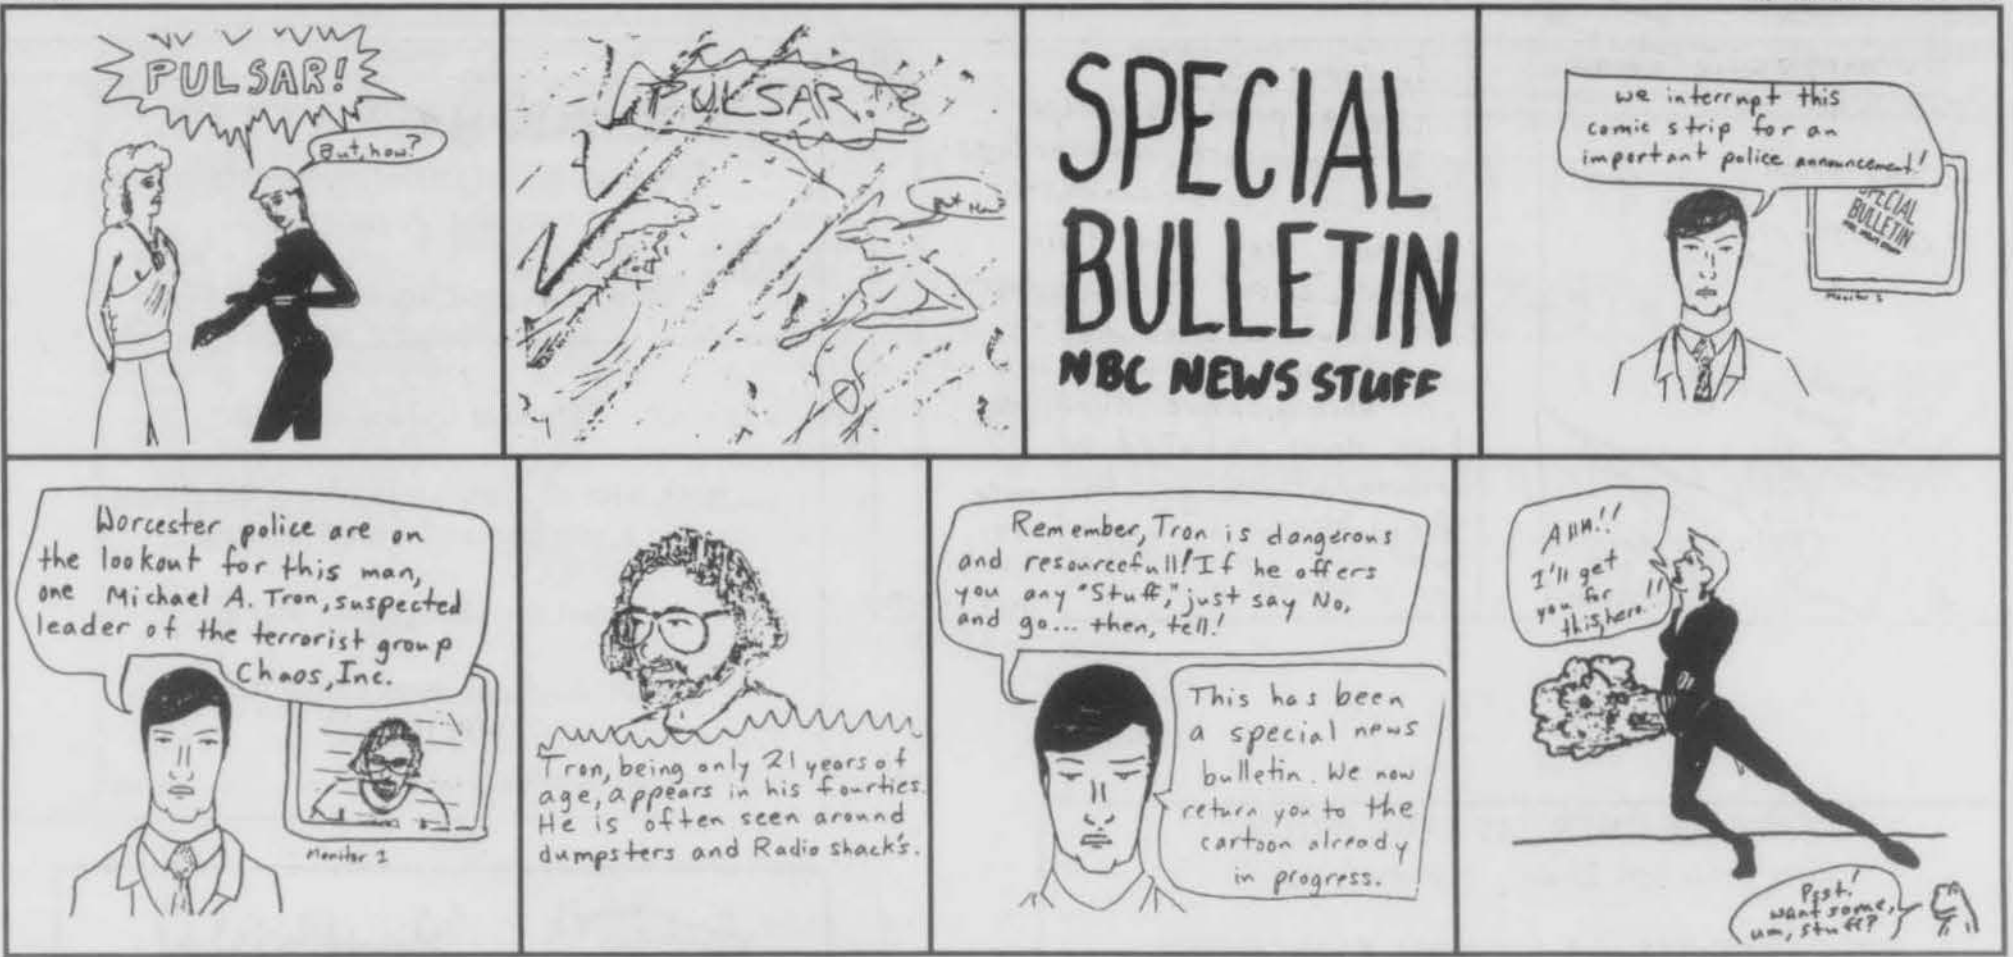 PULSAR!
But, how?
PULSAR!
But How?
SPECIAL
BULLETIN
NBC NEWS STUFF
we interrupt this
comic strip for an
important police announcement!
SPECIAL
BULLETIN
NBC NEWS STUFF
Monitor 1
Worcester police are on
the lookout for this man,
one Michael A. Tron, suspected
leader of the terrorist group
Chaos, Inc.
Monitor 1
Tron, being only 21 years of
age, appears in his fourties.
He is often seen around
dumpsters and Radio shack's.
Remember, Tron is dangerous
and resourcefull! If he offers
you any "Stuff," just say No,
and go... then, tell!
This has been
a special news
bulletin. We now
return you to the
cartoon already
in progress.
AHH!!
I'll get
you for
this, hero!!
Psst!
want some,
um, stuff?